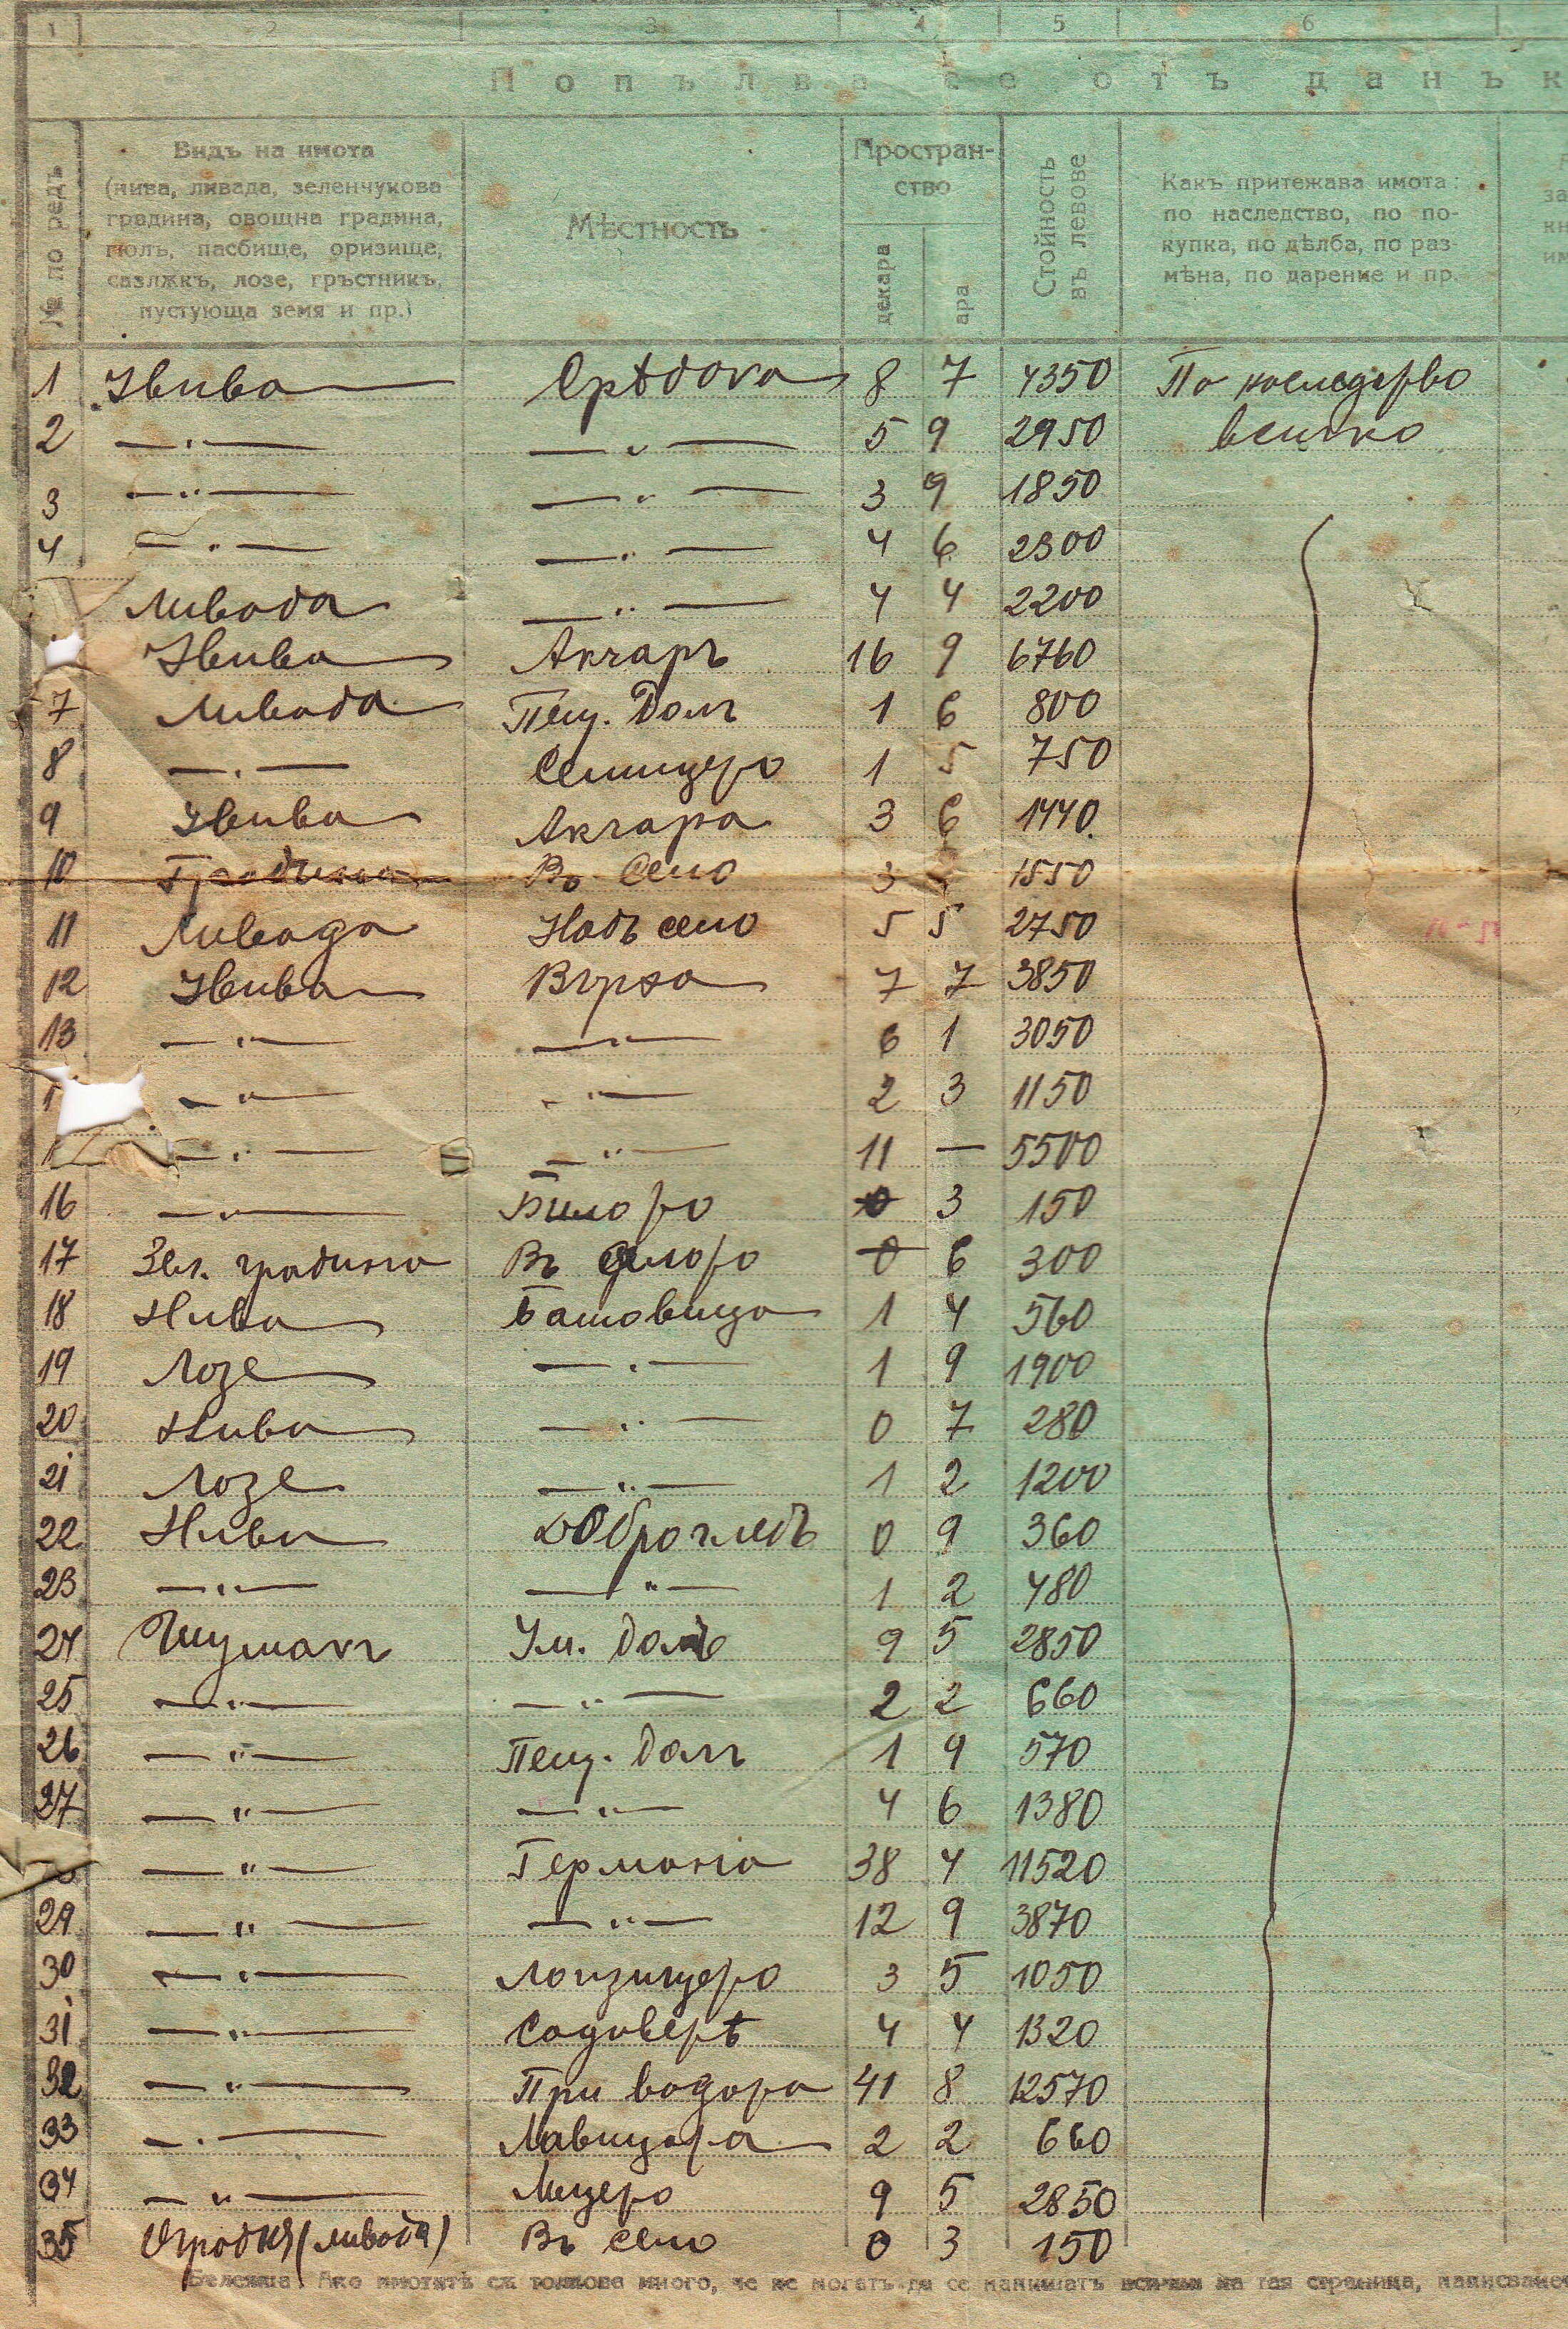 1 2 3 4 5 6
Попълва се отъ данък
№ по редъ
Видъ на имота
(нива, ливада, зеленчукова
градина, овощна градина,
гюлъ, пасбище, оризище,
сазлѫкъ, лозе, гръстникъ,
пустующа земя и пр.)
Мѣстность
Простран-
ство
декара
ара
Стойность
въ левове
Какъ притежава имота:
по наследство, по по-
купка, по дѣлба, по раз-
мѣна, по дарение и пр.
за
кн
им
1 Нива 8 7 4350 По наследство
2 — " — — " — 5 9 2950 всичко
3 — " — — " — 3 9 1850
4 — " — — " — 4 6 2300
Ливада — " — 4 4 2200
Нива Акчаръ 16 9 6760
7 Ливада Пещ. Долъ 1 6 800
8 — " — 1 5 750
9 Нива Акчара 3 6 1440
10 Градина Въ село 3 1550
11 Ливада Надъ село 5 5 2750
12 Нива Върха 7 7 3850
13 — " — — " — 6 1 3050
1 — " — — " — 2 3 1150
1 — " — — " — 11 — 5500
16 — " — Билото 0 3 150
17 Зел. градина Въ селото 0 6 300
18 Нива Батовица 1 4 560
19 Лозе — " — 1 9 1900
20 Нива — " — 0 7 280
21 Лозе — " — 1 2 1200
22 Нива Доброгледъ 0 9 360
23 — " — — " — 1 2 480
24 Шумакъ Ум. Долъ 9 5 2850
25 — " — — " — 2 2 660
26 — " — Пещ. Долъ 1 9 570
27 — " — — " — 4 6 1380
— " — Германа 38 4 11520
29 — " — — " — 12 9 3870
30 — " — 3 5 1050
31 — " — Садоветѣ 4 4 1320
32 — " — При водата 41 8 12570
33 — " — 2 2 660
34 — " — 9 5 2850
35 (ливада) Въ село 0 3 150
Бележка. Ако имотитѣ сѫ толкова много, че не могатъ да се напишатъ всички на тая страница,